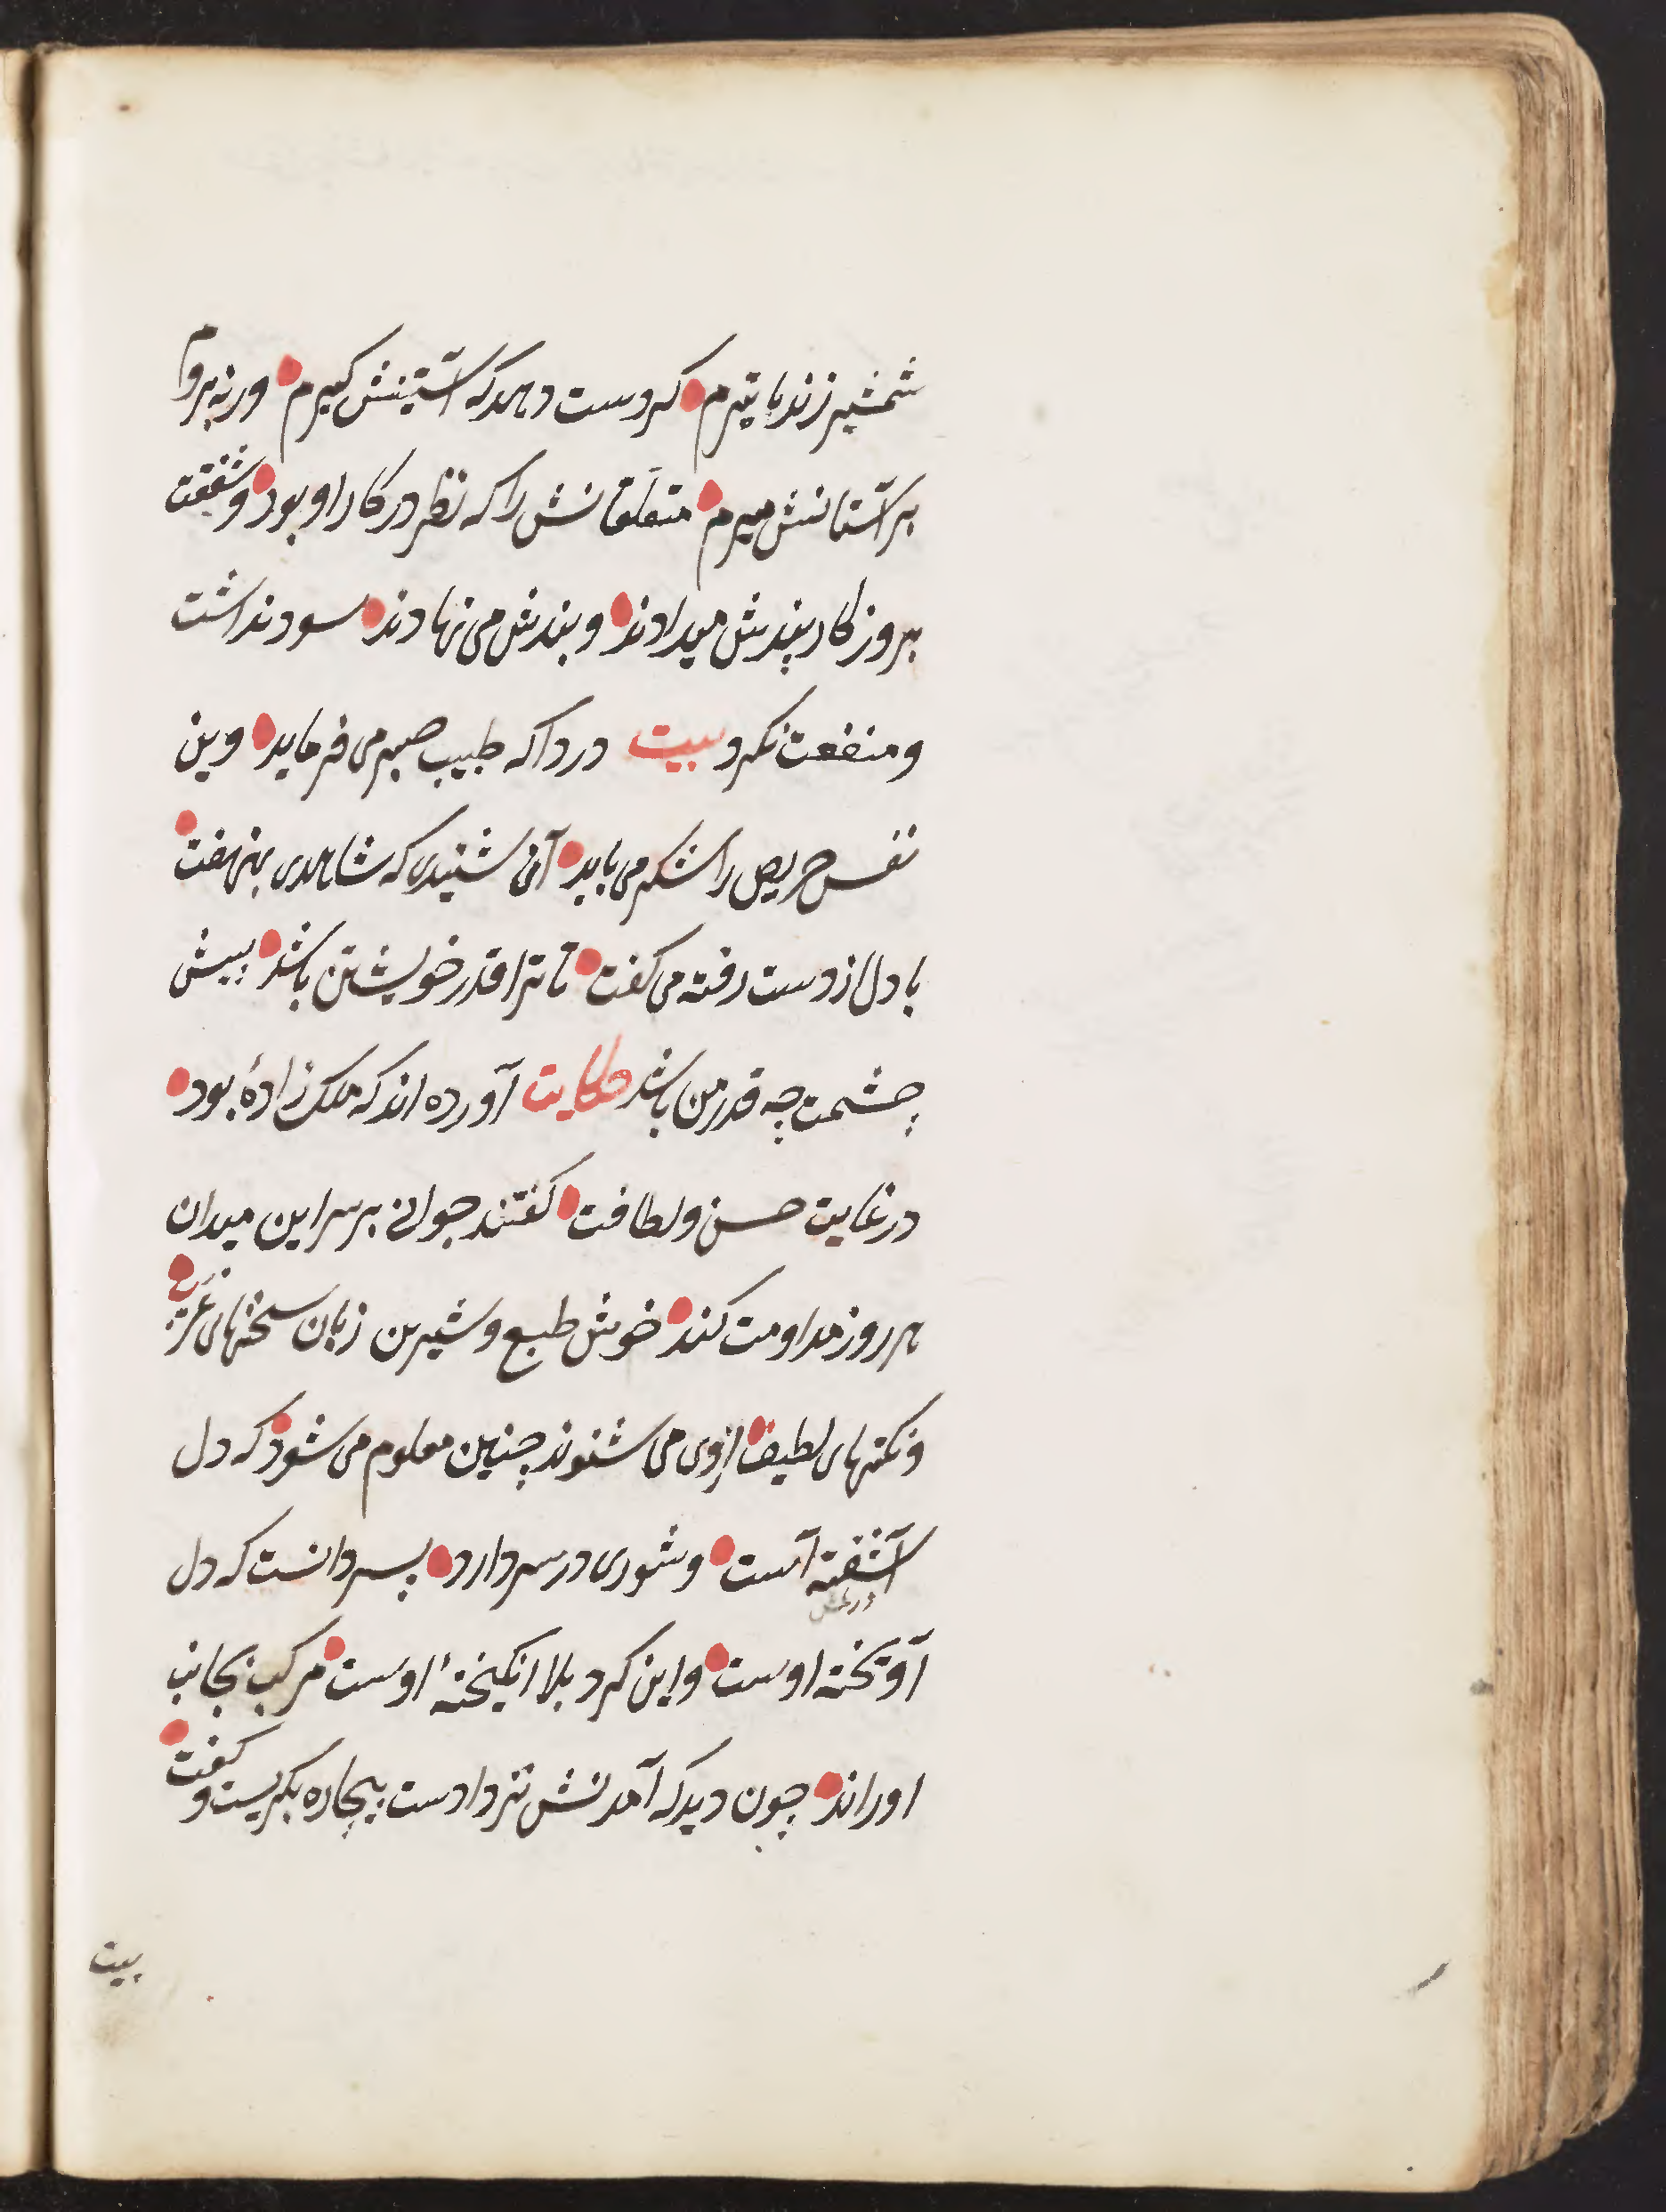 شمشیر زند یا تیرم کر دست دهد که آستینش کیرم ورنه بروم
بر آستانش میرم متعلقانش را که نظر در کار او بود و شفقت
بروزکار پندش میدادند و بندش می نهادند سود نداشت
و منفعت نکرد بیت دردا که طبیب صبر می فرماید وین
نفس حریص را شکر می باید آن شنیدی که شاهدی بنهفت
با دل از دست رفته می کفت تا ترا قدر خویشتن باشد پیش
چشمت چه قدر من باشد حکایت آورده اند که ملک زادهٔ بود
در غایت حسن و لطافت کفتند جوانی بر سر این میدان
هر روز مداومت کند خوش طبع و شیرین زبان سخنهای غریب
و نکتهای لطیف از وی می شنوند چنین معلوم می شود که دل
آشفته است و شوری در سر دارد پسر دانست که دل
آویخته اوست و این کرد بلا انکیختهٔ اوست مرکب بجانب
او راند چون دید که آمدنش نزد اوست بیچاره بکریست و کفت
بیت